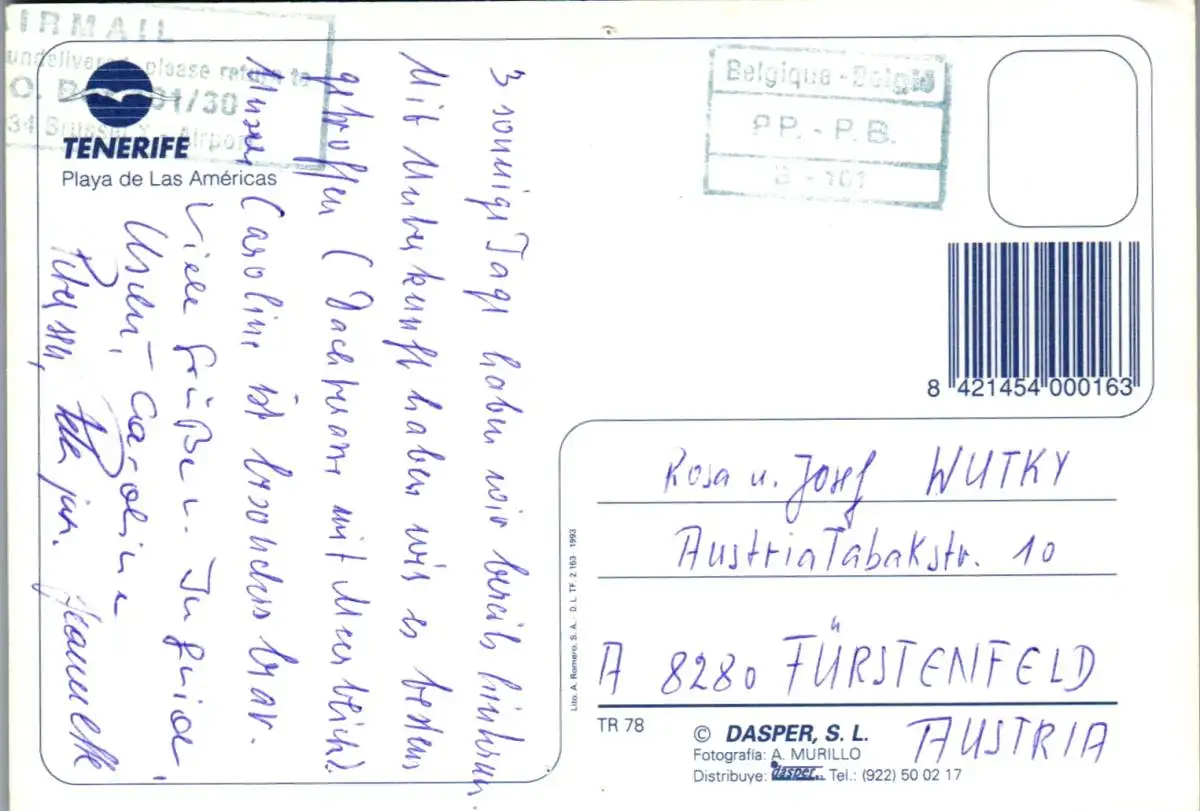 AIRMAIL
undelivered, please return to
01/30
Airport
TENERIFE
Playa de Las Américas
3 sonnige Tage haben wir bereits hinter uns.
Mit Unterkunft haben wir es bestens
getroffen (Dachterrasse mit Meerblick).
Unsere Caroline ist besonders brav.
Viele Grüße u. Ingrid,
Uschi, Caroline
Peter sen, Peter jun. Jeannette
Belgique - België
P.P. - P.B.
B - 101
8 421454 000163
Rosa u. Josef WUTKY
AustriaTabakstr. 10
A 8280 FÜRSTENFELD
AUSTRIA
Lito. A. Romero, S. A. - D. L. TF. 2.163 - 1993
TR 78
© DASPER, S. L.
Fotografía: A. MURILLO
Distribuye: dasper Tel.: (922) 50 02 17